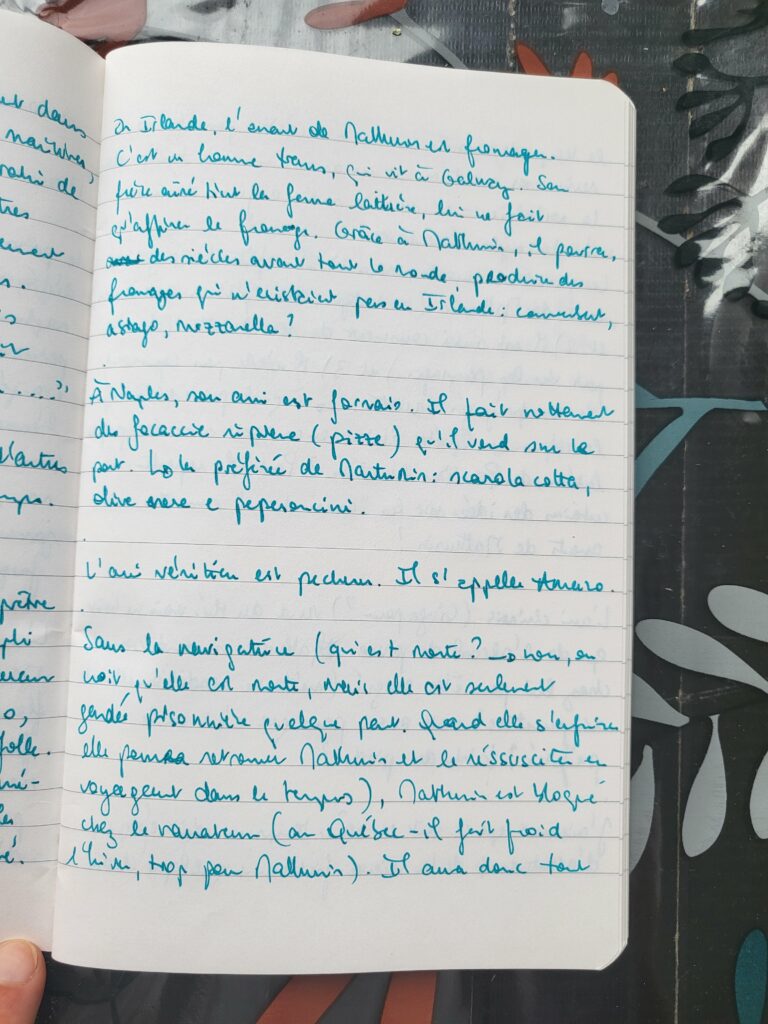 ut dans
En Irlande, l'amant de Mathurin est fromager.
C'est un homme trans, qui vit à Galway. Son
frère aîné tient la ferme laitière, lui ne fait
qu'affiner le fromage. Grâce à Mathurin, il pourra,
des siècles avant tout le monde produire des
fromages qui n'existaient pas en Irlande : camembert,
asiago, mozzarella ?
À Naples, son ami est fornaio. Il fait nottement
des focaccie ripiene (pizze) qu'il vend sur le
port. La préférée de Marturin : scarola cotta,
olive nere e peperoncini.
L'ami vénitien est pecheur. Il s'appelle
Sans la navigatrice (qui est morte ? → non, on
croit qu'elle est morte, mais elle est seulement
gardée prisonnière quelque part. Quand elle s'enfuira
elle pourra retrouver Mathurin et le réssusciter en
voyageant dans le temps), Mathurin est bloqué
chez le narrateur (au Québec - il fait froid
l'hiver, trop pour Mathurin). Il aura donc tout
tres
ement
prêtre
folle.